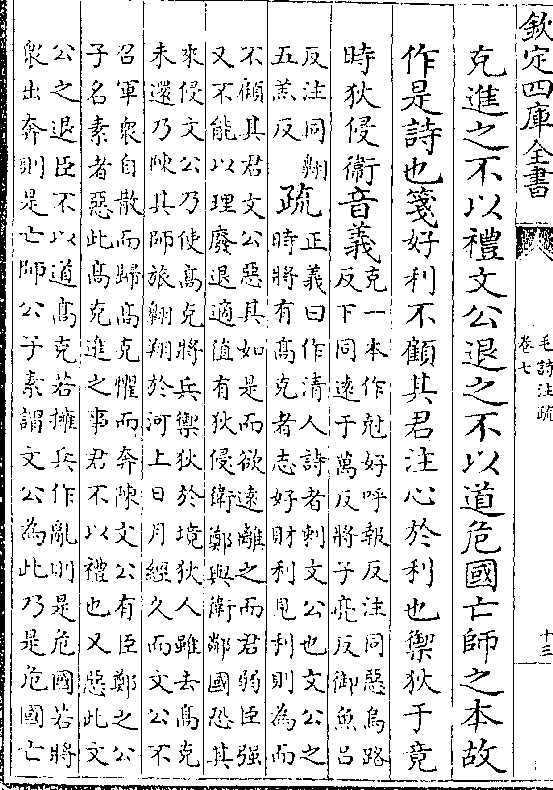 欽定四庫全書
毛詩注疏
卷七
十三
克進之不以禮文公退之不以道危國亡師之本故
作是詩也箋好利不顧其君注心於利也禦狄于竟
時狄侵衛音義克一本作尅好呼報反注同惡烏路
反下同逺于萬反將子亮反御魚吕
反注同翺
五羔反疏正義曰作清人詩者刺文公也文公之
時將有髙克者志好財利見利則為而
不顧其君文公惡其如是而欲逺離之而君弱臣強
又不能以理廢退適值有狄侵衛鄭與衛鄰國恐其
來侵文公乃使髙克將兵禦狄於境狄人雖去髙克
未還乃陳其師旅翺翔於河上日月經久而文公不
召軍衆自散而歸髙克懼而奔陳文公有臣鄭之公
子名素者惡此髙克進之事君不以禮也又惡此文
公之退臣不以道髙克若擁兵作亂則是危國若將
衆出奔則是亡師公子素謂文公為此乃是危國亡